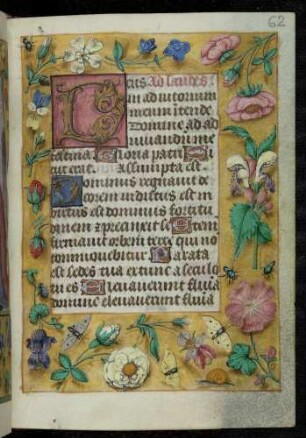 62
Deus Ad laudes
in adiutorium
meum intende
Domine ad ad
iuuandum me
festina Gloria patri Si
cut erat. Assumpta est
Dominus regnauit de
corem indutus est in
dutus est dominus fortitu
dinem et precinxit se Etem
firmauit orbem terre qui no
commouebitur Parata
est sedes tua ex tunc a seculo
tu es Eleuauerunt flumina
domine eleuauerunt flumina